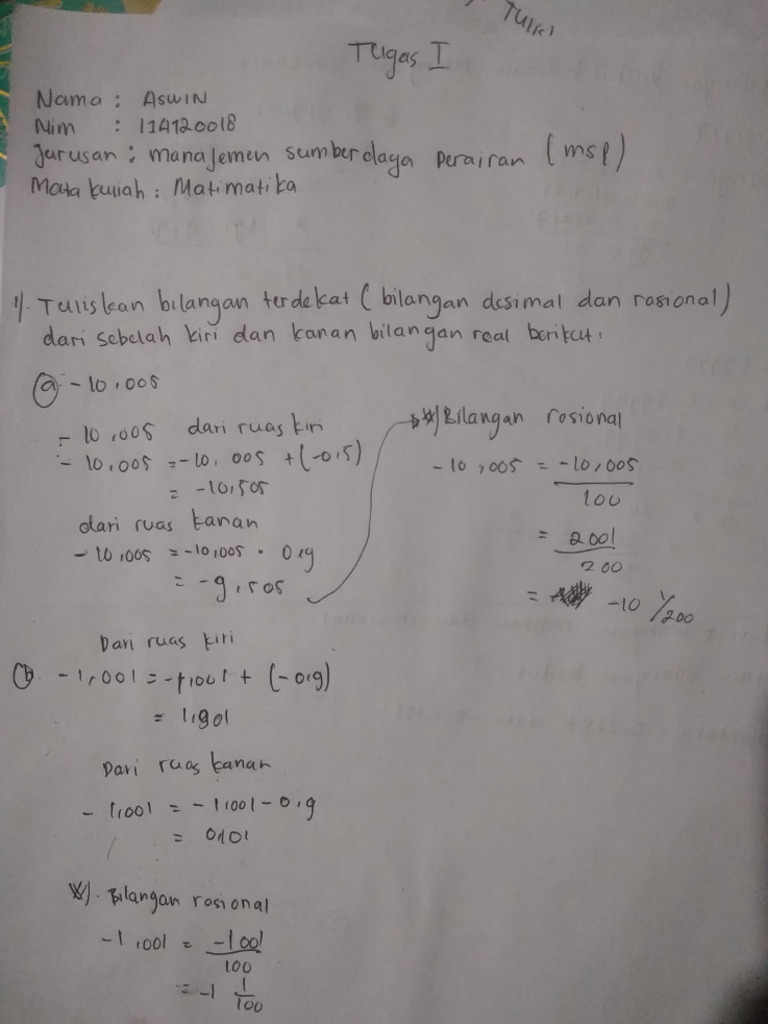 Tugas I
Nama : ASWIN
Nim : 114120018
Jurusan : manajemen sumberdaya perairan (msp)
Mata kuliah : Matimatika
1). Tuliskan bilangan terdekat ( bilangan desimal dan rasional)
dari sebelah kiri dan kanan bilangan real berikut :
a - 10,005
- 10,005 dari ruas kiri
- 10,005 = -10,005 + (-0,5)
= -10,505
dari ruas kanan
- 10,005 = -10,005 . 0,9
= -9,505
*) Bilangan rosional
-10,005 = -10,005
100
= 2001
200
= -10 1/200
Dari ruas kiri
b. -1,001 = -1,001 + (-0,9)
= 1,901
Dari ruas kanan
- 1,001 = -1,001 - 0,9
= 0,101
*). Bilangan rosional
-1,001 = -1001
100
= -1 1
100